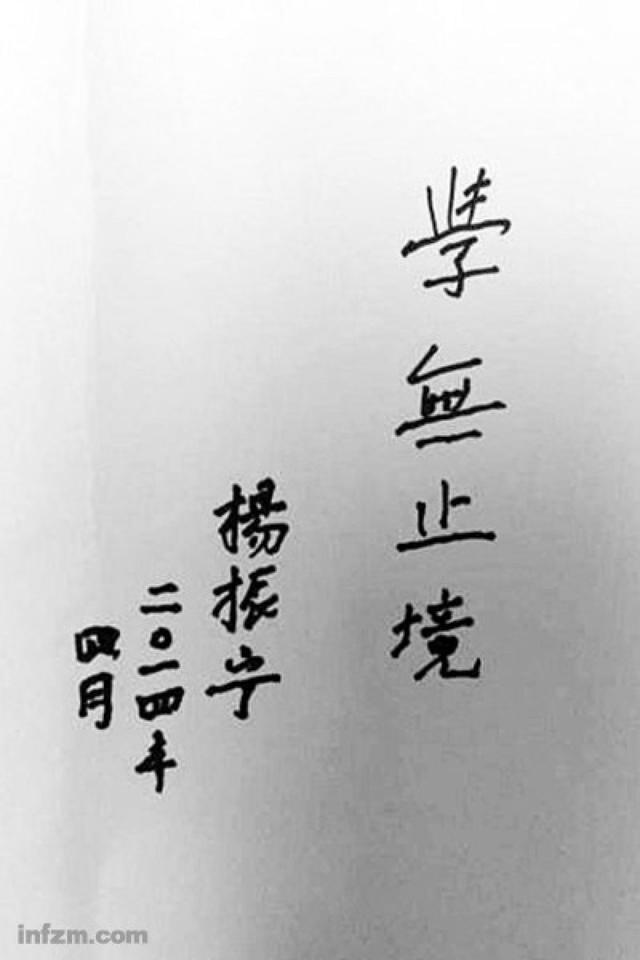 學無止境
楊振宁
二〇一四年
四月
infzm.com